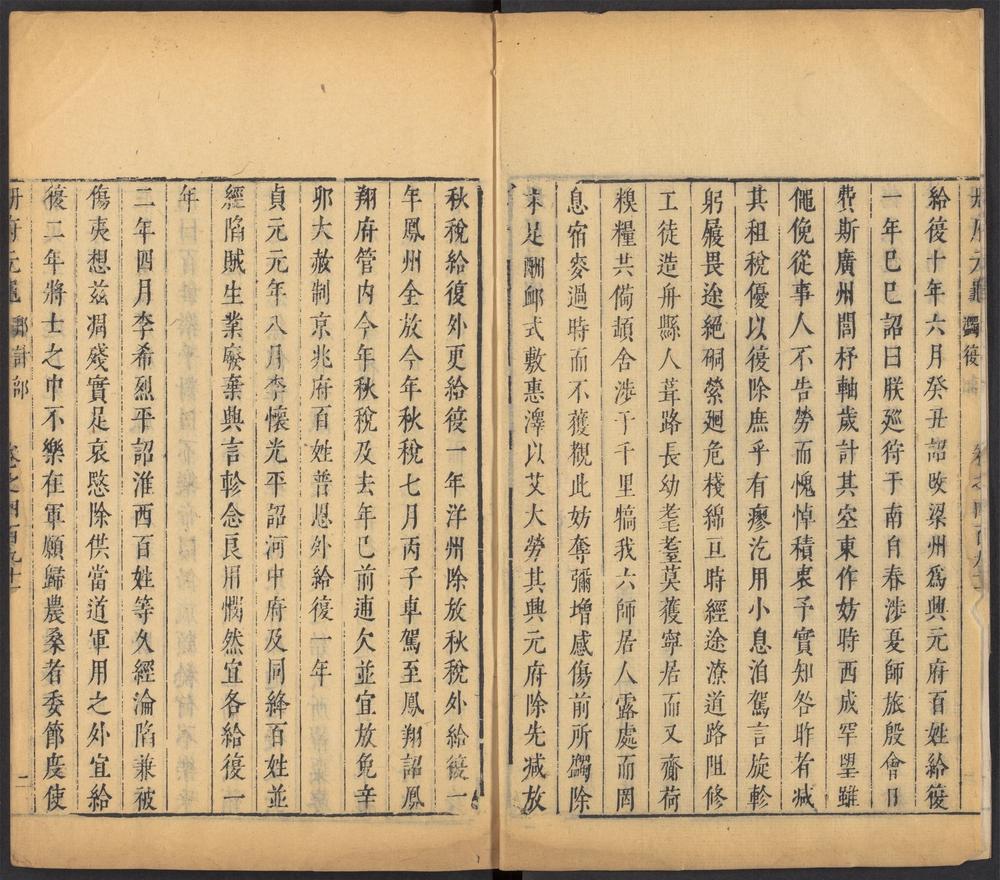 冊府元龜 蠲復 卷之四百九十一
給復十年六月癸丑詔改梁州爲興元府百姓給復
一年巳巳詔曰朕廵狩于南自春涉夏師旅殷會日
費斯廣州閭杼軸歲計其空東作妨時西成罕望雖
僶俛從事人不告勞而愧悼積衷予實知咎昨者减
其租稅優以復除庶乎有瘳汔用小息洎駕言旋軫
躬履畏途絕磵縈廻危棧綿亘時經途潦道路阻修
工徒造舟縣人葺路長幼耄耋莫獲寧居而又齎荷
糗糧共備頓舍涉于千里犒我六師居人露處而罔
息宿麥過時而不穫覩此妨奪彌增感傷前所蠲除
未足酬䘏式敷惠澤以艾大勞其興元府除先减放
秋稅給復外更給復一年洋州除放秋稅外給復一
年鳳州全放今年秋稅七月丙子車駕至鳳翔詔鳳
翔府管内今年秋稅及去年巳前逋欠並宜放免辛
卯大赦制京兆府百姓普恩外給復一年
貞元元年八月李懷光平詔河中府及同絳百姓並
經陷賊生業廢棄興言軫念良用憫然宜各給復一
年
二年四月李希烈平詔淮西百姓等久經淪陷兼被
傷夷想兹凋殘實足哀愍除供當道軍用之外宜給
復二年將士之中不樂在軍願歸農桑者委節度使
冊府元龜 邦計部 卷之四百九十一 二